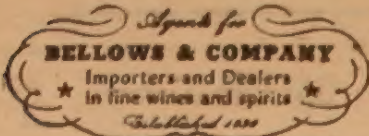 Agents for
BELLOWS & COMPANY
Importers and Dealers
in fine wines and spirits
Established 1830